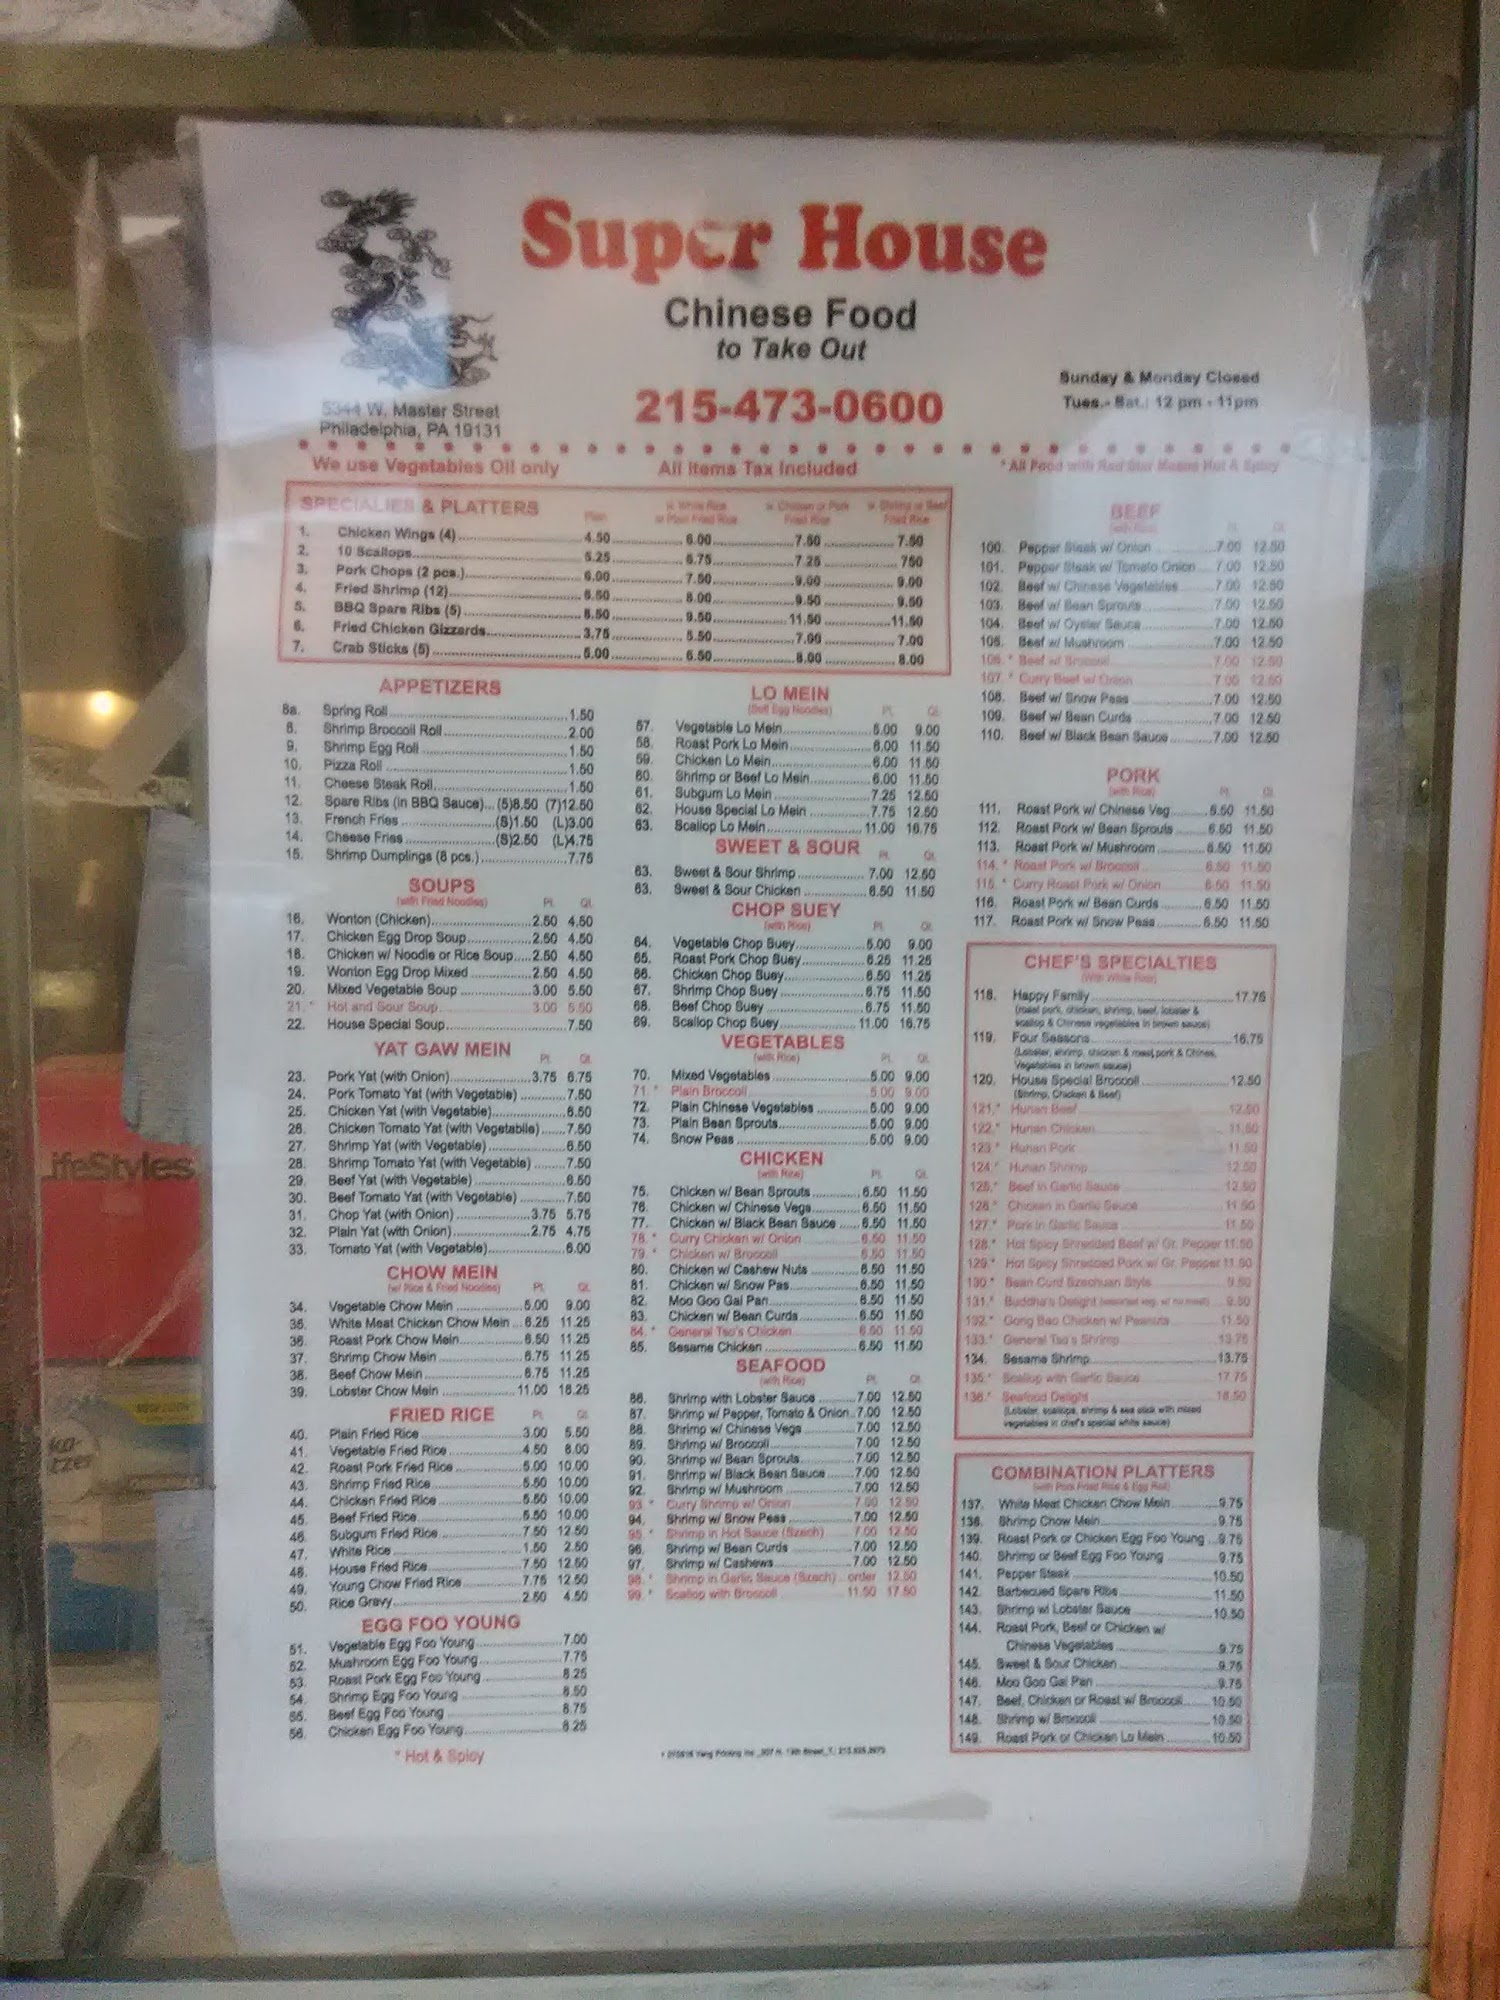 Super House
Chinese Food
to Take Out
215-473-0600
Sunday & Monday Closed
Tues.- Sat.: 12 pm - 11pm
5344 W. Master Street
Philadelphia, PA 19131
We use Vegetables Oil only
All Items Tax Included
* All Food with Red Star Means Hot & Spicy
SPECIALIES & PLATTERS
Plain
w. White Rice or Plain Fried Rice
w. Chicken or Pork Fried Rice
w. Shrimp or Beef Fried Rice
1. Chicken Wings (4) 4.50 6.00 7.50 7.50
2. 10 Scallops 5.25 6.75 7.25 750
3. Pork Chops (2 pcs.) 6.00 7.50 9.00 9.00
4. Fried Shrimp (12) 6.50 8.00 9.50 9.50
5. BBQ Spare Ribs (5) 8.50 9.50 11.50 11.50
6. Fried Chicken Gizzards 3.75 5.50 7.00 7.00
7. Crab Sticks (5) 5.00 6.50 8.00 8.00
APPETIZERS
8a. Spring Roll 1.50
8. Shrimp Broccoli Roll 2.00
9. Shrimp Egg Roll 1.50
10. Pizza Roll 1.50
11. Cheese Steak Roll 1.50
12. Spare Ribs (in BBQ Sauce) (5)8.50 (7)12.50
13. French Fries (S)1.50 (L)3.00
14. Cheese Fries (S)2.50 (L)4.75
15. Shrimp Dumplings (8 pcs.) 7.75
SOUPS
(with Fried Noodles) Pt. Qt.
16. Wonton (Chicken) 2.50 4.50
17. Chicken Egg Drop Soup 2.50 4.50
18. Chicken w/ Noodle or Rice Soup 2.50 4.50
19. Wonton Egg Drop Mixed 2.50 4.50
20. Mixed Vegetable Soup 3.00 5.50
21. * Hot and Sour Soup 3.00 5.50
22. House Special Soup 7.50
YAT GAW MEIN Pt. Qt.
23. Pork Yat (with Onion) 3.75 6.75
24. Pork Tomato Yat (with Vegetable) 7.50
25. Chicken Yat (with Vegetable) 6.50
26. Chicken Tomato Yat (with Vegetabile) 7.50
27. Shrimp Yat (with Vegetable) 6.50
28. Shrimp Tomato Yat (with Vegetable) 7.50
29. Beef Yat (with Vegetable) 6.50
30. Beef Tomato Yat (with Vegetable) 7.50
31. Chop Yat (with Onion) 3.75 5.75
32. Plain Yat (with Onion) 2.75 4.75
33. Tomato Yat (with Vegetable) 6.00
CHOW MEIN
(w/ Rice & Fried Noodles) Pt. Qt.
34. Vegetable Chow Mein 5.00 9.00
35. White Meat Chicken Chow Mein 6.25 11.25
36. Roast Pork Chow Mein 6.50 11.25
37. Shrimp Chow Mein 6.75 11.25
38. Beef Chow Mein 6.75 11.25
39. Lobster Chow Mein 11.00 16.25
FRIED RICE Pt. Qt.
40. Plain Fried Rice 3.00 5.50
41. Vegetable Fried Rice 4.50 8.00
42. Roast Pork Fried Rice 5.00 10.00
43. Shrimp Fried Rice 5.50 10.00
44. Chicken Fried Rice 5.50 10.00
45. Beef Fried Rice 5.50 10.00
46. Subgum Fried Rice 7.50 12.50
47. White Rice 1.50 2.50
48. House Fried Rice 7.50 12.50
49. Young Chow Fried Rice 7.75 12.50
50. Rice Gravy 2.50 4.50
EGG FOO YOUNG
51. Vegetable Egg Foo Young 7.00
52. Mushroom Egg Foo Young 7.75
53. Roast Pork Egg Foo Young 8.25
54. Shrimp Egg Foo Young 8.50
55. Beef Egg Foo Young 8.75
56. Chicken Egg Foo Young 8.25
* Hot & Spicy
LO MEIN
(Soft Egg Noodles) Pt. Qt.
57. Vegetable Lo Mein 5.00 9.00
58. Roast Pork Lo Mein 6.00 11.50
59. Chicken Lo Mein 6.00 11.50
60. Shrimp or Beef Lo Mein 6.00 11.50
61. Subgum Lo Mein 7.25 12.50
62. House Special Lo Mein 7.75 12.50
63. Scallop Lo Mein 11.00 16.75
SWEET & SOUR Pt. Qt.
63. Sweet & Sour Shrimp 7.00 12.50
63. Sweet & Sour Chicken 6.50 11.50
CHOP SUEY
(with Rice) Pt. Qt.
64. Vegetable Chop Suey 5.00 9.00
65. Roast Pork Chop Suey 6.25 11.25
66. Chicken Chop Suey 6.50 11.25
67. Shrimp Chop Suey 6.75 11.50
68. Beef Chop Suey 6.75 11.50
69. Scallop Chop Suey 11.00 16.75
VEGETABLES
(with Rice) Pt. Qt.
70. Mixed Vegetables 5.00 9.00
71. * Plain Broccoli 5.00 9.00
72. Plain Chinese Vegetables 5.00 9.00
73. Plain Bean Sprouts 5.00 9.00
74. Snow Peas 5.00 9.00
CHICKEN
(with Rice) Pt. Qt.
75. Chicken w/ Bean Sprouts 6.50 11.50
76. Chicken w/ Chinese Vegs 6.50 11.50
77. Chicken w/ Black Bean Sauce 6.50 11.50
78. * Curry Chicken w/ Onion 6.50 11.50
79. * Chicken w/ Broccoli 6.50 11.50
80. Chicken w/ Cashew Nuts 6.50 11.50
81. Chicken w/ Snow Pas 6.50 11.50
82. Moo Goo Gai Pan 6.50 11.50
83. Chicken w/ Bean Curds 6.50 11.50
84. * General Tso's Chicken 6.50 11.50
85. Sesame Chicken 6.50 11.50
SEAFOOD
(with Rice) Pt. Qt.
86. Shrimp with Lobster Sauce 7.00 12.50
87. Shrimp w/ Pepper, Tomato & Onion 7.00 12.50
88. Shrimp w/ Chinese Vegs 7.00 12.50
89. Shrimp w/ Broccoli 7.00 12.50
90. Shrimp w/ Bean Sprouts 7.00 12.50
91. Shrimp w/ Black Bean Sauce 7.00 12.50
92. Shrimp w/ Mushroom 7.00 12.50
93 * Curry Shrimp w/ Onion 7.00 12.50
94. Shrimp w/ Snow Peas 7.00 12.50
95. * Shrimp in Hot Sauce (Szech) 7.00 12.50
96. Shrimp w/ Bean Curds 7.00 12.50
97. Shrimp w/ Cashews 7.00 12.50
98. * Shrimp in Garlic Sauce (Szech) order 12.50
99. * Scallop with Broccoli 11.50 17.50
BEEF
(with Rice) Pt. Qt.
100. Pepper Steak w/ Onion 7.00 12.50
101. Pepper Steak w/ Tomato Onion 7.00 12.50
102. Beef w/ Chinese Vegetables 7.00 12.50
103. Beef w/ Bean Sprouts 7.00 12.50
104. Beef w/ Oyster Sauce 7.00 12.50
105. Beef w/ Mushroom 7.00 12.50
106. * Beef w/ Broccoli 7.00 12.50
107. * Curry Beef w/ Onion 7.00 12.50
108. Beef w/ Snow Peas 7.00 12.50
109. Beef w/ Bean Curds 7.00 12.50
110. Beef w/ Black Bean Sauce 7.00 12.50
PORK
(with Rice) Pt. Qt.
111. Roast Pork w/ Chinese Veg 6.50 11.50
112. Roast Pork w/ Bean Sprouts 6.50 11.50
113. Roast Pork w/ Mushroom 6.50 11.50
114. * Roast Pork w/ Broccoli 6.50 11.50
115. * Curry Roast Pork w/ Onion 6.50 11.50
116. Roast Pork w/ Bean Curds 6.50 11.50
117. Roast Pork w/ Snow Peas 6.50 11.50
CHEF'S SPECIALTIES
(With White Rice)
118. Happy Family 17.75
(roast pork, chicken, shrimp, beef, lobster &
scallop & Chinese vegetables in brown sauce)
119. Four Seasons 16.75
(Lobster, shrimp, chicken & roast pork & Chines,
Vegetables in brown sauce)
120. House Special Broccoli 12.50
(Shrimp, Chicken & Beef)
121.* Hunan Beef 12.50
122.* Hunan Chicken 11.50
123.* Hunan Pork 11.50
124.* Hunan Shrimp 12.50
125.* Beef in Garlic Sauce 12.50
126.* Chicken in Garlic Sauce 11.50
127.* Pork in Garlic Sauce 11.50
128.* Hot Spicy Shredded Beef w/ Gr. Pepper 11.50
129.* Hot Spicy Shredded Pork w/ Gr. Pepper 11.50
130.* Bean Curd Szechuan Style 9.50
131.* Buddha's Delight 9.50
132.* Gong Bao Chicken w/ Peanuts 11.50
133.* General Tso's Shrimp 13.75
134. Sesame Shrimp 13.75
135.* Scallop with Garlic Sauce 17.75
136.* Seafood Delight 18.50
(Lobster, scallops, shrimp & sea stick with mixed
vegetables in chef's special white sauce)
COMBINATION PLATTERS
(with Pork Fried Rice & Egg Roll)
137. White Meat Chicken Chow Mein 9.75
138. Shrimp Chow Mein 9.75
139. Roast Pork or Chicken Egg Foo Young 9.75
140. Shrimp or Beef Egg Foo Young 9.75
141. Pepper Steak 10.50
142. Barbecued Spare Ribs 11.50
143. Shrimp w/ Lobster Sauce 10.50
144. Roast Pork, Beef or Chicken w/
Chinese Vegetables 9.75
145. Sweet & Sour Chicken 9.75
146. Moo Goo Gai Pan 9.75
147. Beef, Chicken or Roast w/ Broccoli 10.50
148. Shrimp w/ Broccoli 10.50
149. Roast Pork or Chicken Lo Mein 10.50
LifeStyles